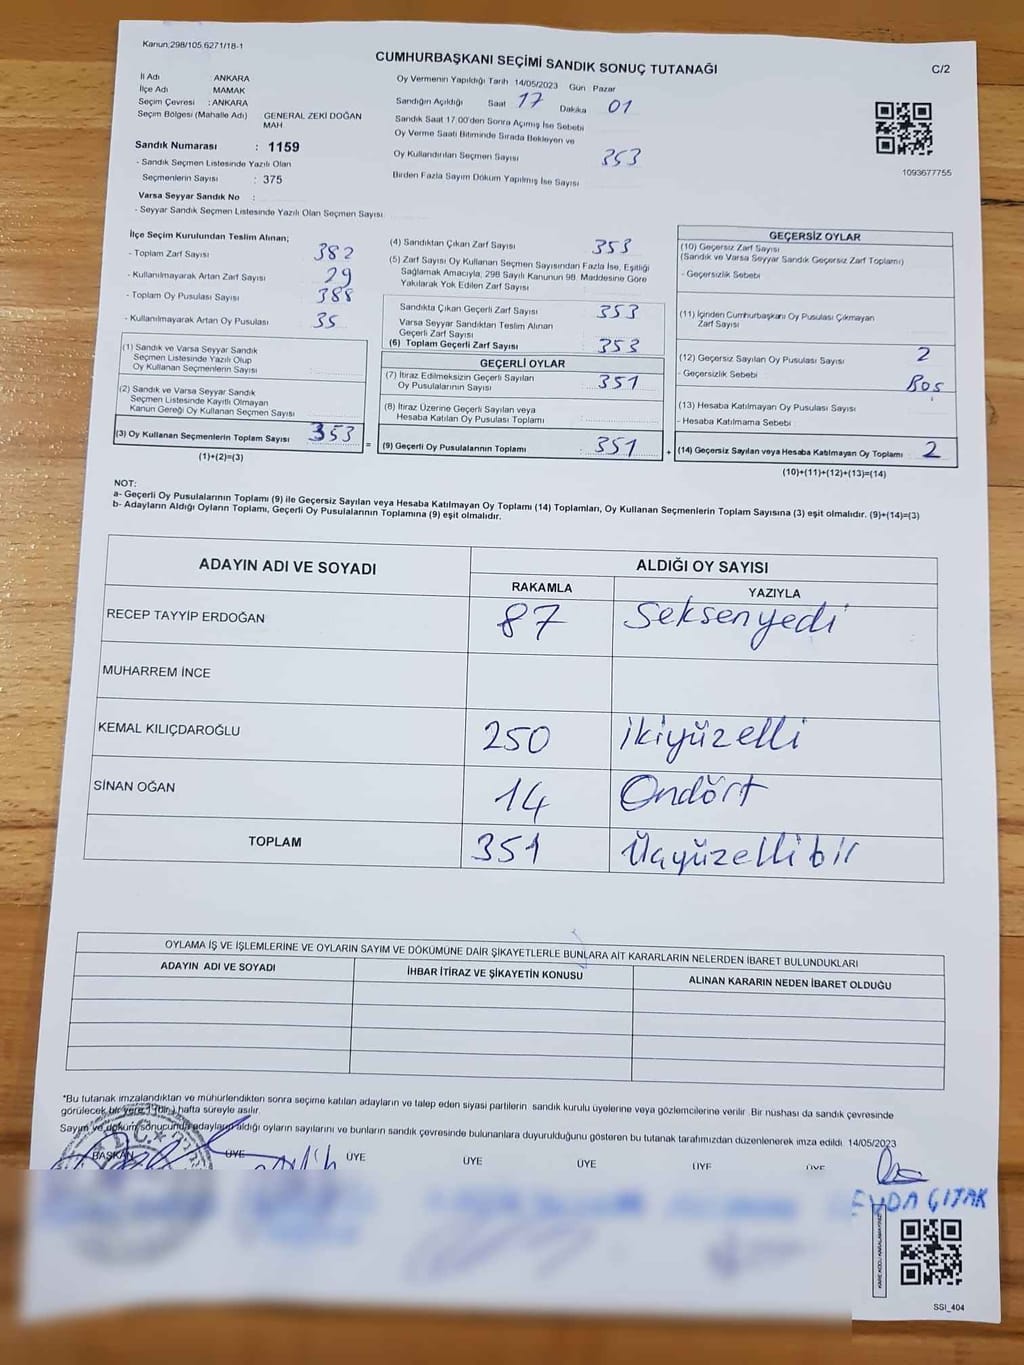 Kanun:298/105.6271/18-1
CUMHURBAŞKANI SEÇİMİ SANDIK SONUÇ TUTANAĞI
C/2
İl Adı ANKARA
İlçe Adı MAMAK
Seçim Çevresi : ANKARA
Seçim Bölgesi (Mahalle Adı) GENERAL ZEKİ DOĞAN MAH
Sandık Numarası : 1159
- Sandık Seçmen Listesinde Yazılı Olan
Seçmenlerin Sayısı : 375
Varsa Seyyar Sandık No :
- Seyyar Sandık Seçmen Listesinde Yazılı Olan Seçmen Sayısı
Oy Vermenin Yapıldığı Tarih 14/05/2023 Gün Pazar
Sandığın Açıldığı Saat 17 Dakika 01
Sandık Saat 17:00'den Sonra Açımış İse Sebebi
Oy Verme Saati Bitiminde Sırada Bekleyen ve
Oy Kullandırılan Seçmen Sayısı 353
Birden Fazla Sayım Döküm Yapılmış İse Sayısı
1093677755
İlçe Seçim Kurulundan Teslim Alınan;
- Toplam Zarf Sayısı 382
- Kullanılmayarak Artan Zarf Sayısı 29
- Toplam Oy Pusulası Sayısı 388
- Kullanılmayarak Artan Oy Pusulası 35
(1) Sandık ve Varsa Seyyar Sandık
Seçmen Listesinde Yazılı Olup
Oy Kullanan Seçmenlerin Sayısı
(2) Sandık ve Varsa Seyyar Sandık
Seçmen Listesinde Kayıtlı Olmayan
Kanun Gereği Oy Kullanan Seçmen Sayısı
(3) Oy Kullanan Seçmenlerin Toplam Sayısı 353 =
(1)+(2)=(3)
(4) Sandıktan Çıkan Zarf Sayısı 353
(5) Zarf Sayısı Oy Kullanan Seçmen Sayısından Fazla İse, Eşitliği
Sağlamak Amacıyla, 298 Sayılı Kanunun 98. Maddesine Göre
Yakılarak Yok Edilen Zarf Sayısı
Sandıkta Çıkan Geçerli Zarf Sayısı 353
Varsa Seyyar Sandıktan Teslim Alınan
Geçerli Zarf Sayısı
(6) Toplam Geçerli Zarf Sayısı 353
GEÇERLİ OYLAR
(7) İtiraz Edilmeksizin Geçerli Sayılan
Oy Pusulalarının Sayısı 351
(8) İtiraz Üzerine Geçerli Sayılan veya
Hesaba Katılan Oy Pusulası Toplamı
(9) Geçerli Oy Pusulalarının Toplamı 351 +
GEÇERSİZ OYLAR
(10) Geçersiz Zarf Sayısı
(Sandık ve Varsa Seyyar Sandık Geçersiz Zarf Toplamı)
- Geçersizlik Sebebi
(11) İçinden Cumhurbaşkanı Oy Pusulası Çıkmayan
Zarf Sayısı
(12) Geçersiz Sayılan Oy Pusulası Sayısı 2
- Geçersizlik Sebebi Bos
(13) Hesaba Katılmayan Oy Pusulası Sayısı
- Hesaba Katılmama Sebebi
(14) Geçersiz Sayılan veya Hesaba Katılmayan Oy Toplamı 2
(10)+(11)+(12)+(13)=(14)
NOT:
a- Geçerli Oy Pusulalarının Toplamı (9) ile Geçersiz Sayılan veya Hesaba Katılmayan Oy Toplamı (14) Toplamları, Oy Kullanan Seçmenlerin Toplam Sayısına (3) eşit olmalıdır. (9)+(14)=(3)
b- Adayların Aldığı Oyların Toplamı, Geçerli Oy Pusulalarının Toplamına (9) eşit olmalıdır.
ADAYIN ADI VE SOYADI ALDIĞI OY SAYISI
RAKAMLA YAZIYLA
RECEP TAYYİP ERDOĞAN 87 Seksenyedi
MUHARREM İNCE
KEMAL KILIÇDAROĞLU 250 ikiyüzelli
SİNAN OĞAN 14 Ondört
TOPLAM 351 Üçyüzellibir
OYLAMA İŞ VE İŞLEMLERİNE VE OYLARIN SAYIM VE DÖKÜMÜNE DAİR ŞİKAYETLERLE BUNLARA AİT KARARLARIN NELERDEN İBARET BULUNDUKLARI
ADAYIN ADI VE SOYADI İHBAR İTİRAZ VE ŞİKAYETİN KONUSU ALINAN KARARIN NEDEN İBARET OLDUĞU
*Bu tutanak imzalandıktan ve mühürlendikten sonra seçime katılan adayların ve talep eden siyasi partilerin sandık kurulu üyelerine veya gözlemcilerine verilir. Bir nüshası da sandık çevresinde
görülecek bir yere 1 (bir) hafta süreyle asılır.
Sayım ve döküm sonucunda adayların aldığı oyların sayılarını ve bunların sandık çevresinde bulunanlara duyurulduğunu gösteren bu tutanak tarafımızdan düzenlenerek imza edildi. 14/05/2023
BAŞKAN ÜYE ÜYE ÜYE ÜYE ÜYE ÜYE
ÇITAK
SSİ_404